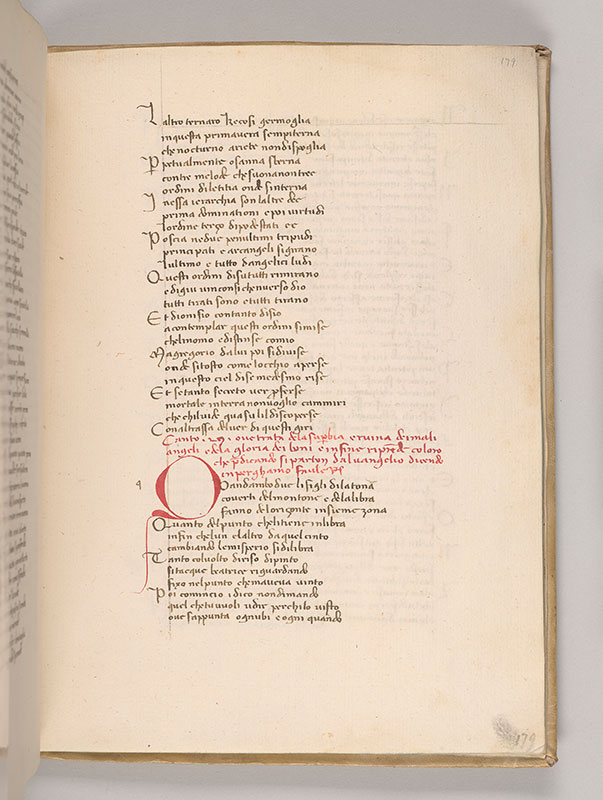 179
L altro ternaro ke cosi germoglia
in questa primavera sempiterna
che nocturno ariete non dispoglia
P petualmente osanna sberna
con tre melode che suonano in tree
ordini di letitia onde s interna
I n essa ierarchia son laltre dee
prima dominationi e poi virtudi
lordine terço di podestati ee
P oscia ne due penultimi tripudi
principati e arcangeli si girano
lultimo e tutto dangelici ludi
Q uesti ordini di su tutti rimirano
e di giu vincon si che verso dio
tutti tirati sono e tutti tirano
E t dionisio con tanto disio
a contemplar questi ordini si mise
che li nomo e distinse comio
M a gregorio da lui poi si divise
onde si tosto come locchio aperse
in questo ciel di se medesimo rise
E t se tanto secreto ver pferse
mortale in terra non voglio cammiri
che chil vide qua su lil discoperse
C on altrassa del ver di questi giri
Canto . 29 . ove trata de la supbia e ruina de i mali
angeli e de la gloria de i boni e infine ripnde coloro
che pdicando si parton da luangelio dicendo
in perghamo favole
Q uando ambo due li figli di latona
coverti del montone e de la libra
fanno de loriçonte insieme zona
Q uanto del punto chel tiene in libra
infin che lun e laltro da quel cinto
cambiando lemisperio si dilibra
T anto col volto di riso dipinto
si tacque beatrice riguardando
fixo nel punto che maveva vinto
P oi comincio i dico non dimando
quel che tu vuoli udir perchio lo visto
ove sappunta ogni ubi e ogni quando
179